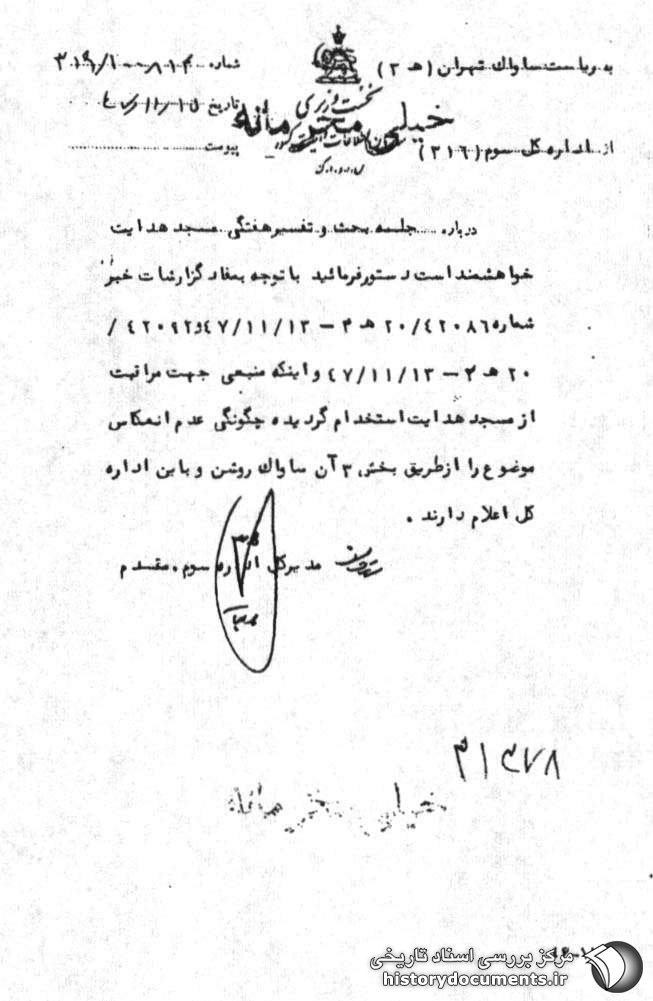 به ریاست ساواک تهران (هـ ۳)
از اداره کل سوم (۳۱۶)
نخست وزیری
سازمان اطلاعات و امنیت کشور
س.ا.و.ا.ک
خیلی محرمانه
شماره
تاریخ ۴۷/۱۱/۱۵
پیوست
درباره جلسه بحث و تفسیر هفتگی مسجد هدایت
خواهشمند است دستور فرمائید با توجه بمفاد گزارشات خبر
شماره ۲۰/۴۲۰۸۶ هـ ۳ – ۴۷/۱۱/۱۳ و ۴۲۰۹۲ /
۲۰ هـ ۳ – ۴۷/۱۱/۱۳ و اینکه منبعی جهت مراقبت
از مسجد هدایت استخدام گردیده چگونگی عدم انعکاس
موضوع را از طریق بخش ۳ آن ساواک روشن و باین اداره
کل اعلام دارند .
مدیر کل اداره سوم . مقدم
۳۱۴۷۸
خیلی محرمانه
مرکز بررسی اسناد تاریخی
historydocuments.ir